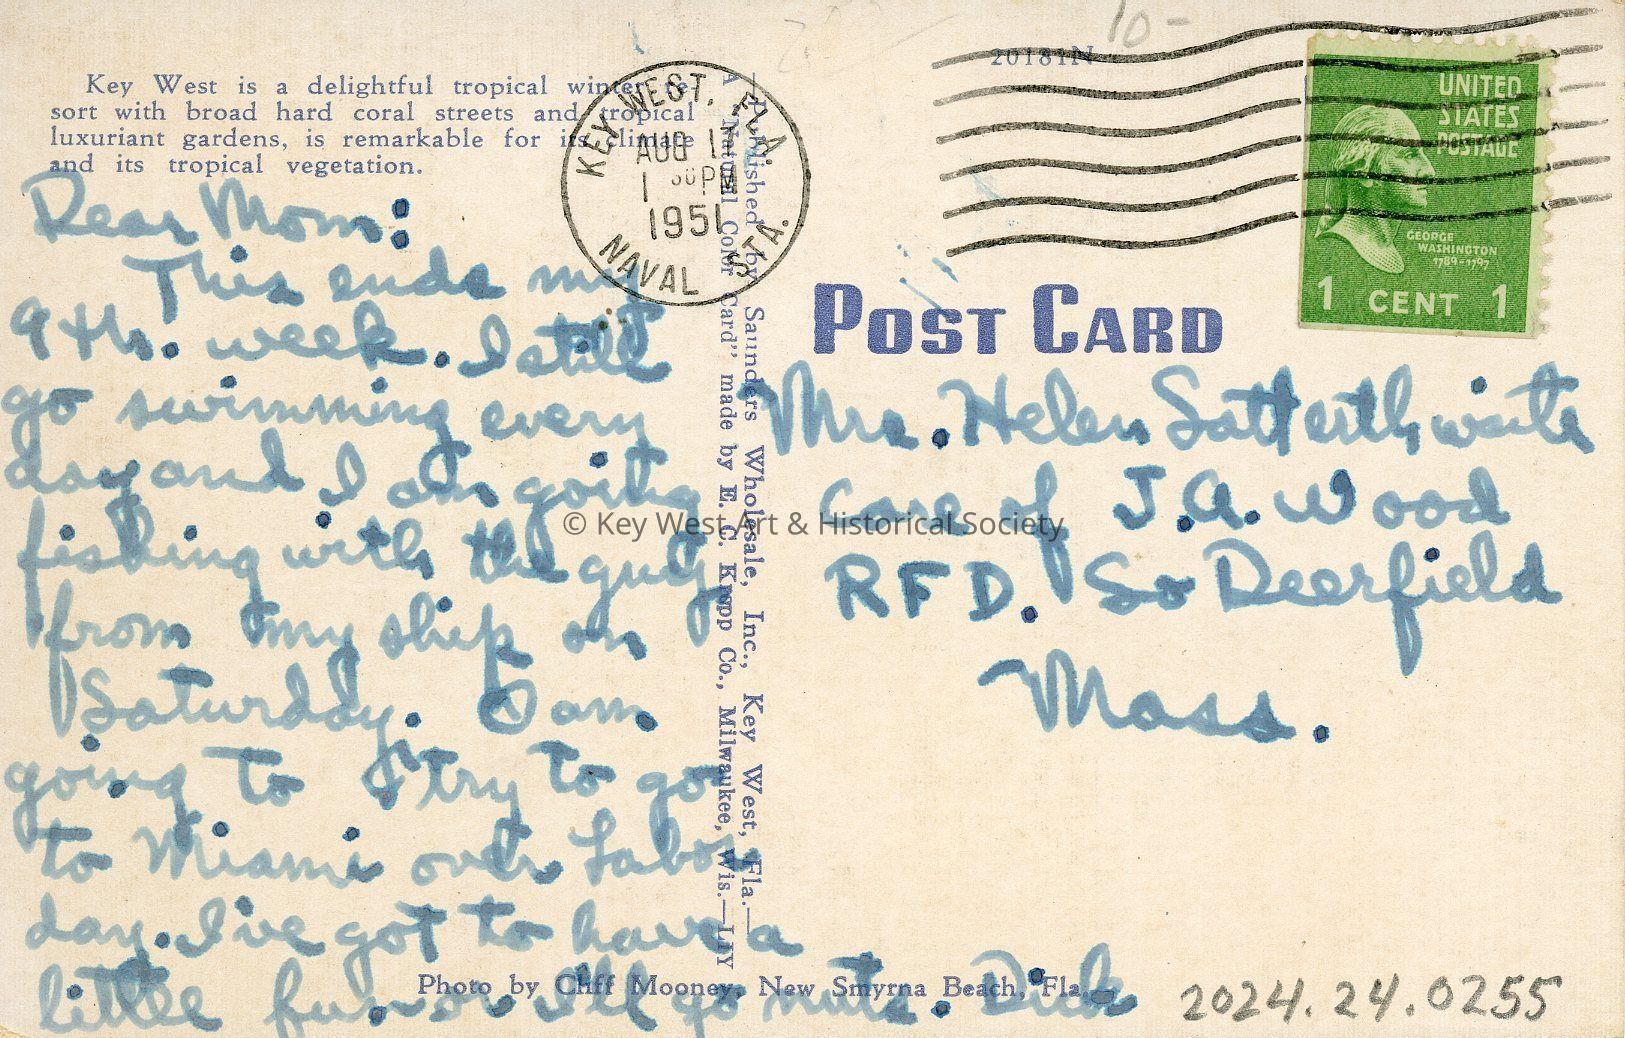 Key West is a delightful tropical winter re-
sort with broad hard coral streets and tropical
luxuriant gardens, is remarkable for its climate
and its tropical vegetation.
Dear Mom:
This ends my
9th. week. I still
go swimming every
day and I am going
fishing with the guys
from my ship on
Saturday. I am
going to try to go
to Miami over Labor
day. I've got to have a
little fun or I'll go nuts. Dick
KEY WEST, FLA.
AUG 1
1 30 PM
1951
NAVAL STA.
Published by Saunders Wholesale, Inc., Key West, Fla.—
A "Natural Color Card" made by E. C. Kropp Co., Milwaukee, Wis.—LIY
10-
20181N
UNITED
STATES
POSTAGE
GEORGE
WASHINGTON
1789-1797
1 CENT 1
POST CARD
Mrs. Helen Satterthwaite
Care of J.A. Wood
RFD. So Deerfield
Mass.
© Key West Art & Historical Society
Photo by Cliff Mooney, New Smyrna Beach, Fla.
2024.24.0255